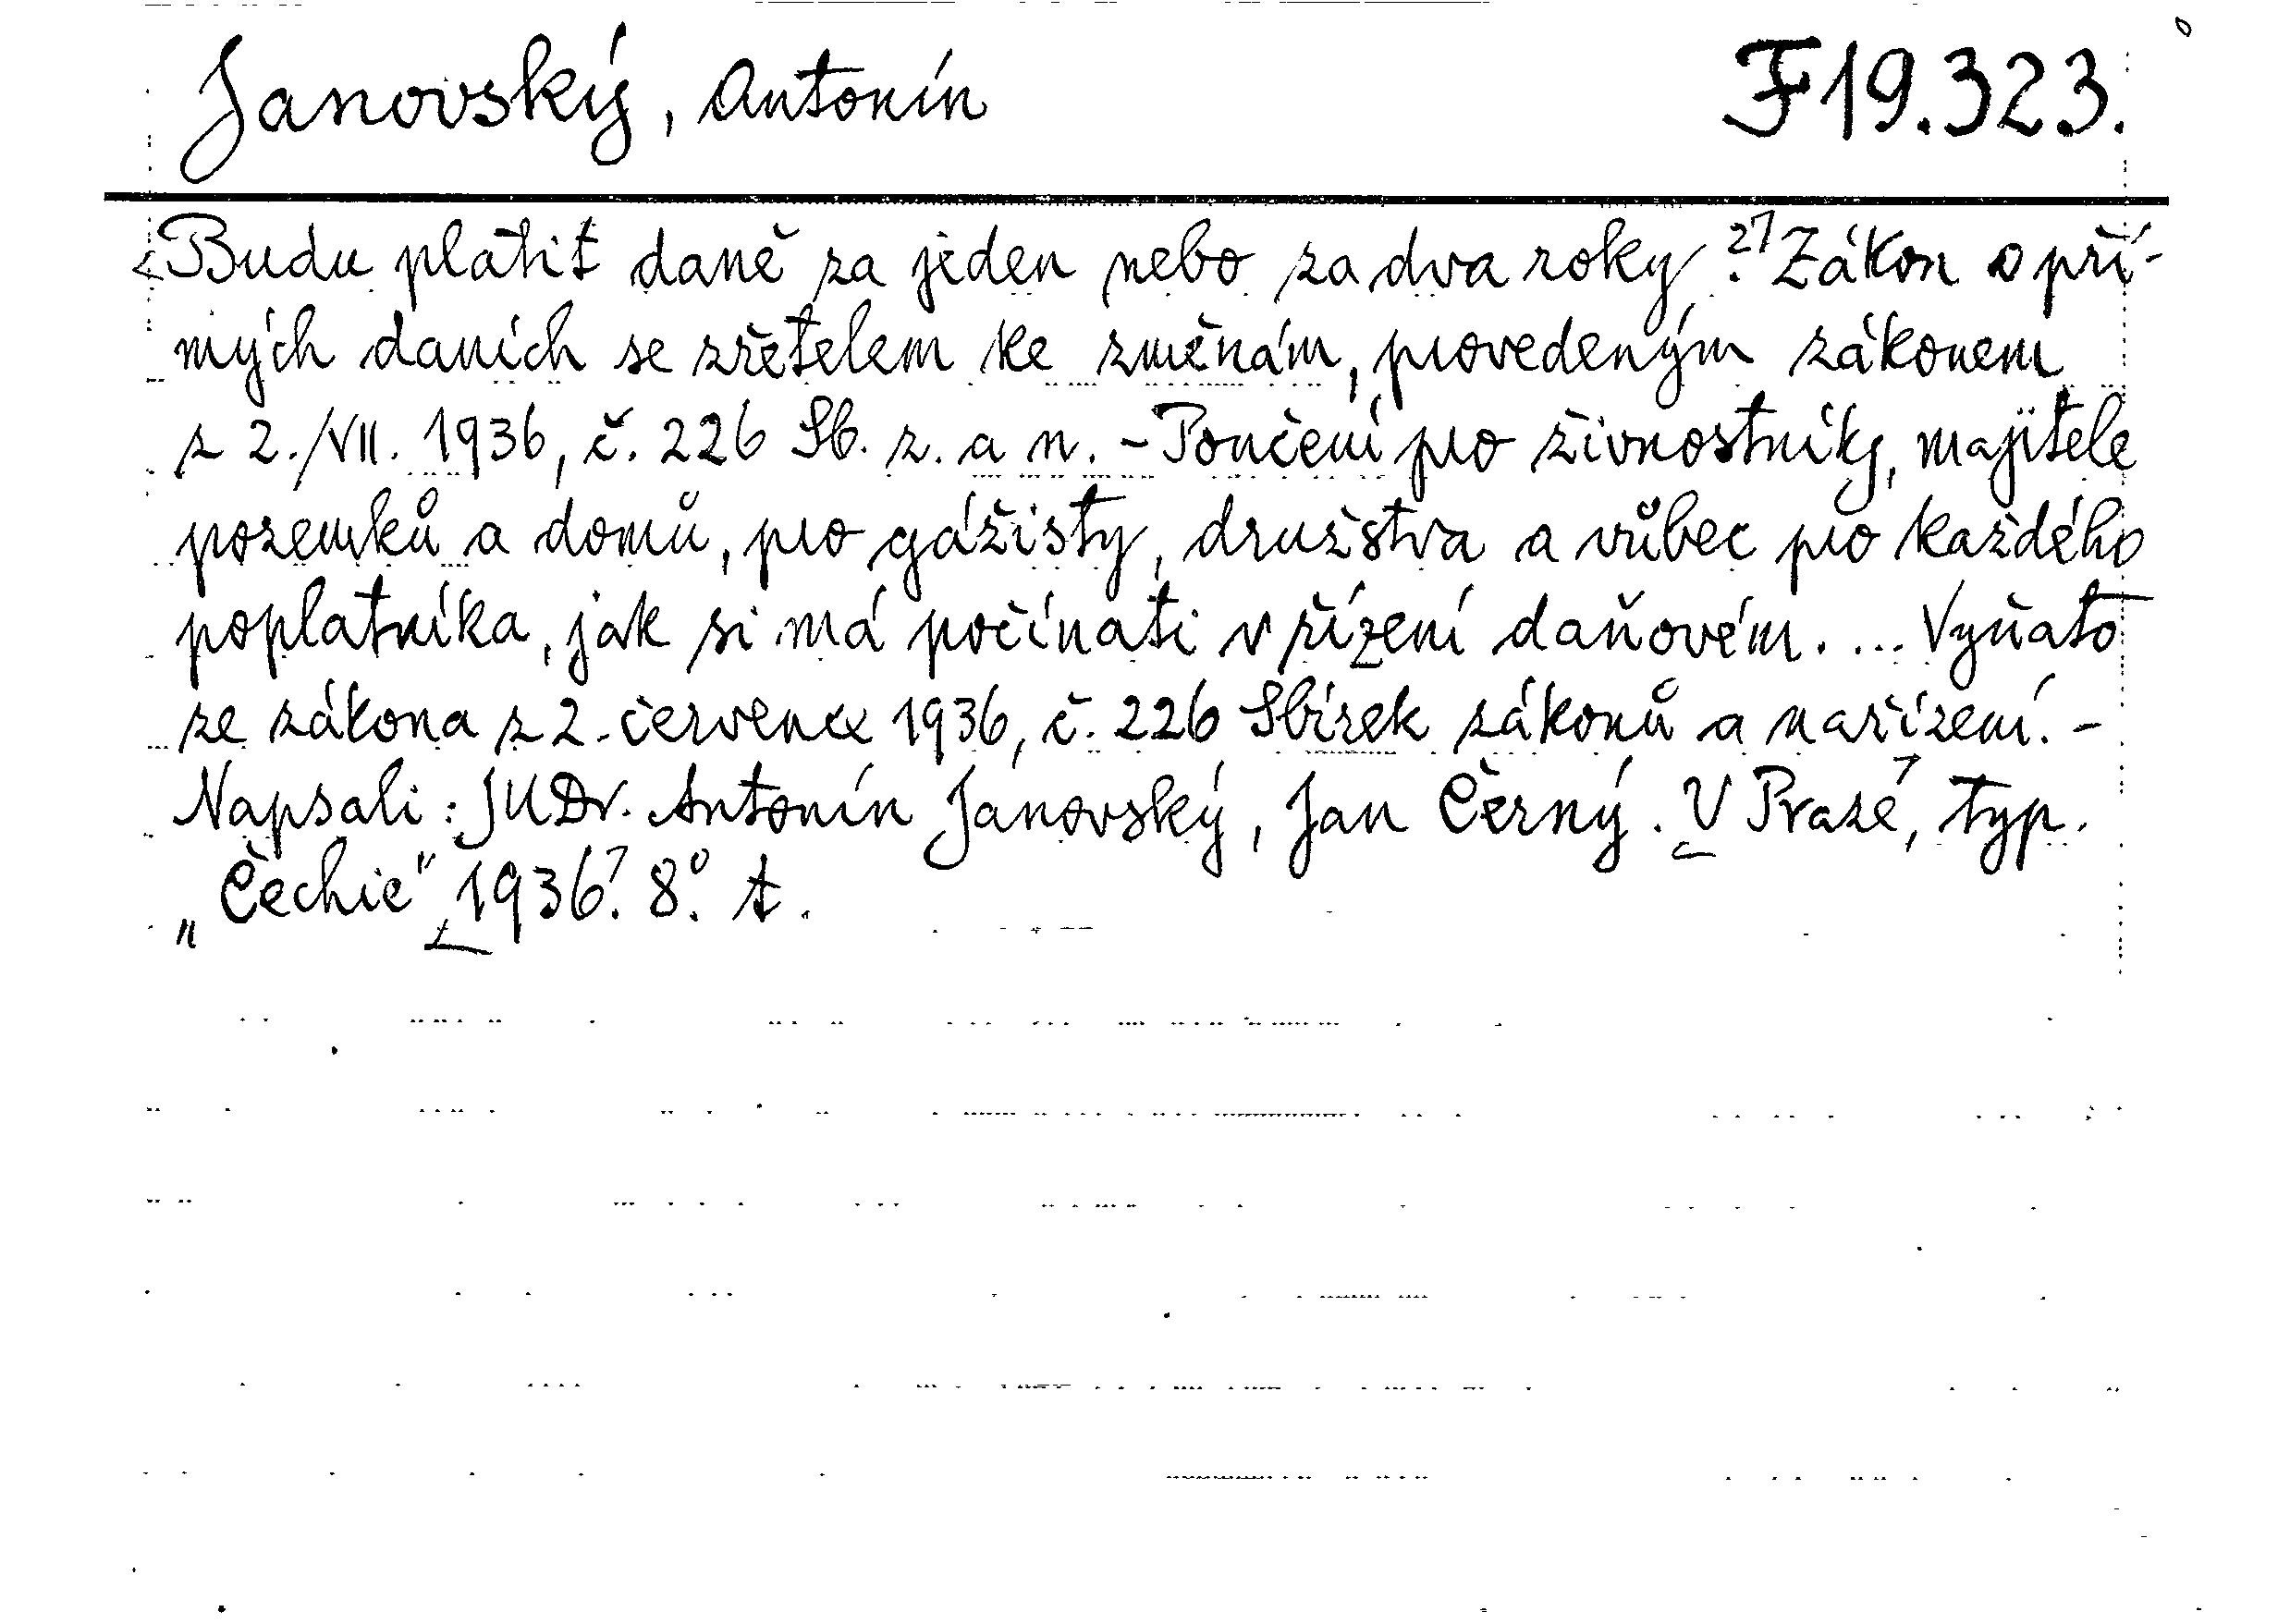 Janovský, Antonín F19.323.
Budu platit daně za jeden nebo za dva roky? Zákon o pří-
mých daních se zřetelem ke změnám, provedeným zákonem
z 2./VII. 1936, č. 226 Sb. z. a n. - Poučení pro živnostníky, majitele
pozemků a domů, pro gážisty, družstva a vůbec pro každého
poplatníka, jak si má počínati v řízení daňovém. ... Vyňato
ze zákona z 2. července 1936, č. 226 Sbírek zákonů a nařízení. -
Napsali: JUDr. Antonín Janovský, Jan Černý. V Praze, typ.
„Čechie" 1936. 8°. t.